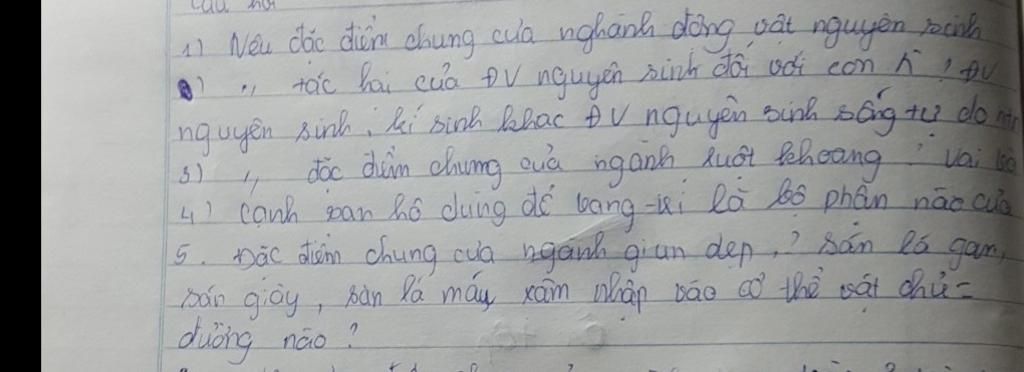 Câu hỏi
1) Nêu đặc điểm chung của nghành động vật nguyên sinh
2) ,, tác hại của ĐV nguyên sinh đối với con ? ĐV
nguyên sinh, kí sinh khác ĐV nguyên sinh sống tự do
3) ,, đặc điểm chung của ngành ruột khoang ? Vai
4) Cành san hô dùng để trang trí là bộ phận nào của
5. Đặc điểm chung của ngành giun dẹp, ? sán lá gan,
sán giây, sán lá máu xâm nhập vào cơ thể vật chủ =
đường nào ?